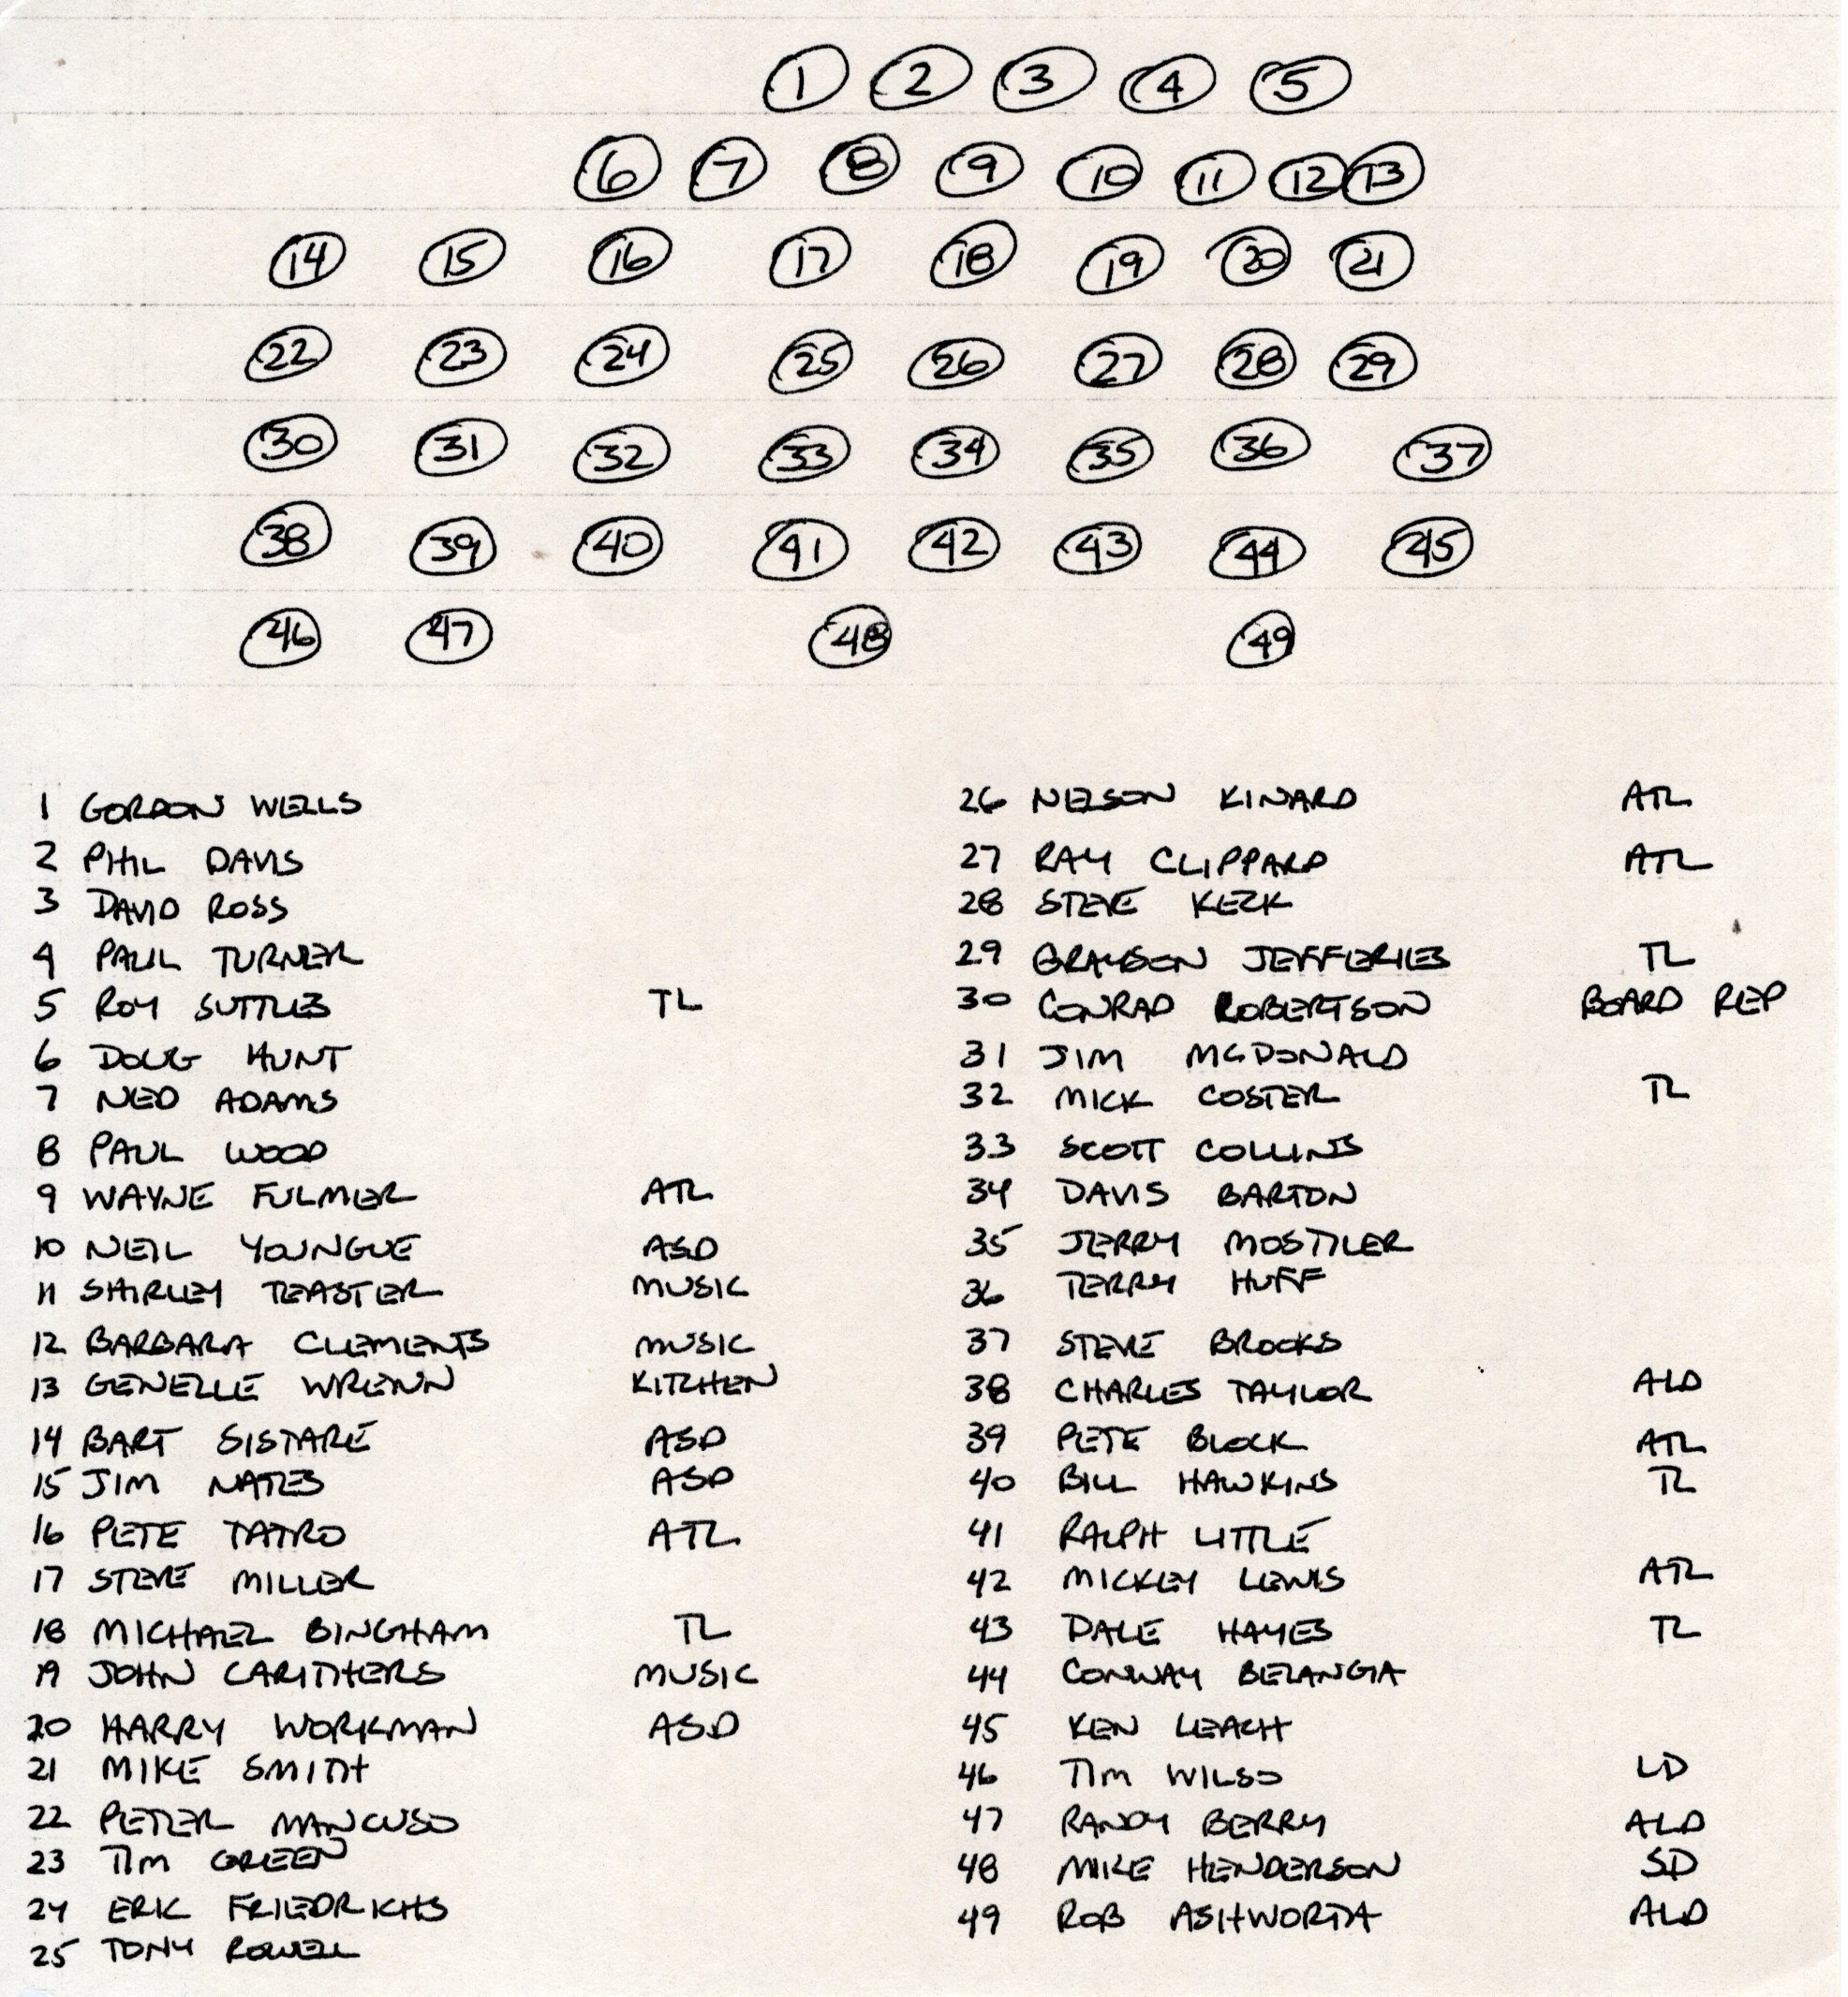 1 2 3 4 5
6 7 8 9 10 11 12 13
14 15 16 17 18 19 20 21
22 23 24 25 26 27 28 29
30 31 32 33 34 35 36 37
38 39 40 41 42 43 44 45
46 47 48 49
1 GORDON WELLS
2 PHIL DAVIS
3 DAVID ROSS
4 PAUL TURNER
5 ROY SUTTLES TL
6 DOUG HUNT
7 NED ADAMS
8 PAUL WOOD
9 WAYNE FULMER ATL
10 NEIL YOUNGUE ASD
11 SHIRLEY TEASTER MUSIC
12 BARBARA CLEMENTS MUSIC
13 GENELLE WRENN KITCHEN
14 BART SISTARE ASD
15 JIM NATES ASD
16 PETE TATRO ATL
17 STEVE MILLER
18 MICHAEL BINGHAM TL
19 JOHN CARITHERS MUSIC
20 HARRY WORKMAN ASD
21 MIKE SMITH
22 PETER MANCUSO
23 TIM GREEN
24 ERIC FRIEDRICHS
25 TONY ROWELL
26 NELSON KINARD ATL
27 RAY CLIPPARD ATL
28 STEVE KECK
29 GRAYSON JEFFERIES TL
30 CONRAD ROBERTSON BOARD REP
31 JIM MCDONALD
32 MICK COSTER TL
33 SCOTT COLLINS
34 DAVIS BARTON
35 JERRY MOSTILER
36 TERRY HUFF
37 STEVE BROOKS
38 CHARLES TAYLOR ALD
39 PETE BLOCK ATL
40 BILL HAWKINS TL
41 RALPH LITTLE
42 MICKEY LEWIS ATL
43 DALE HAYES TL
44 CONWAY BELANGIA
45 KEN LEACH
46 TIM WILSO LD
47 RANDY BERRY ALD
48 MIKE HENDERSON SD
49 ROB ASHWORTH ALD